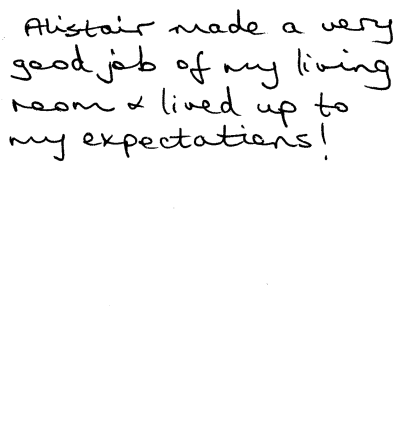 Alistair made a very
good job of my living
room & lived up to
my expectations!